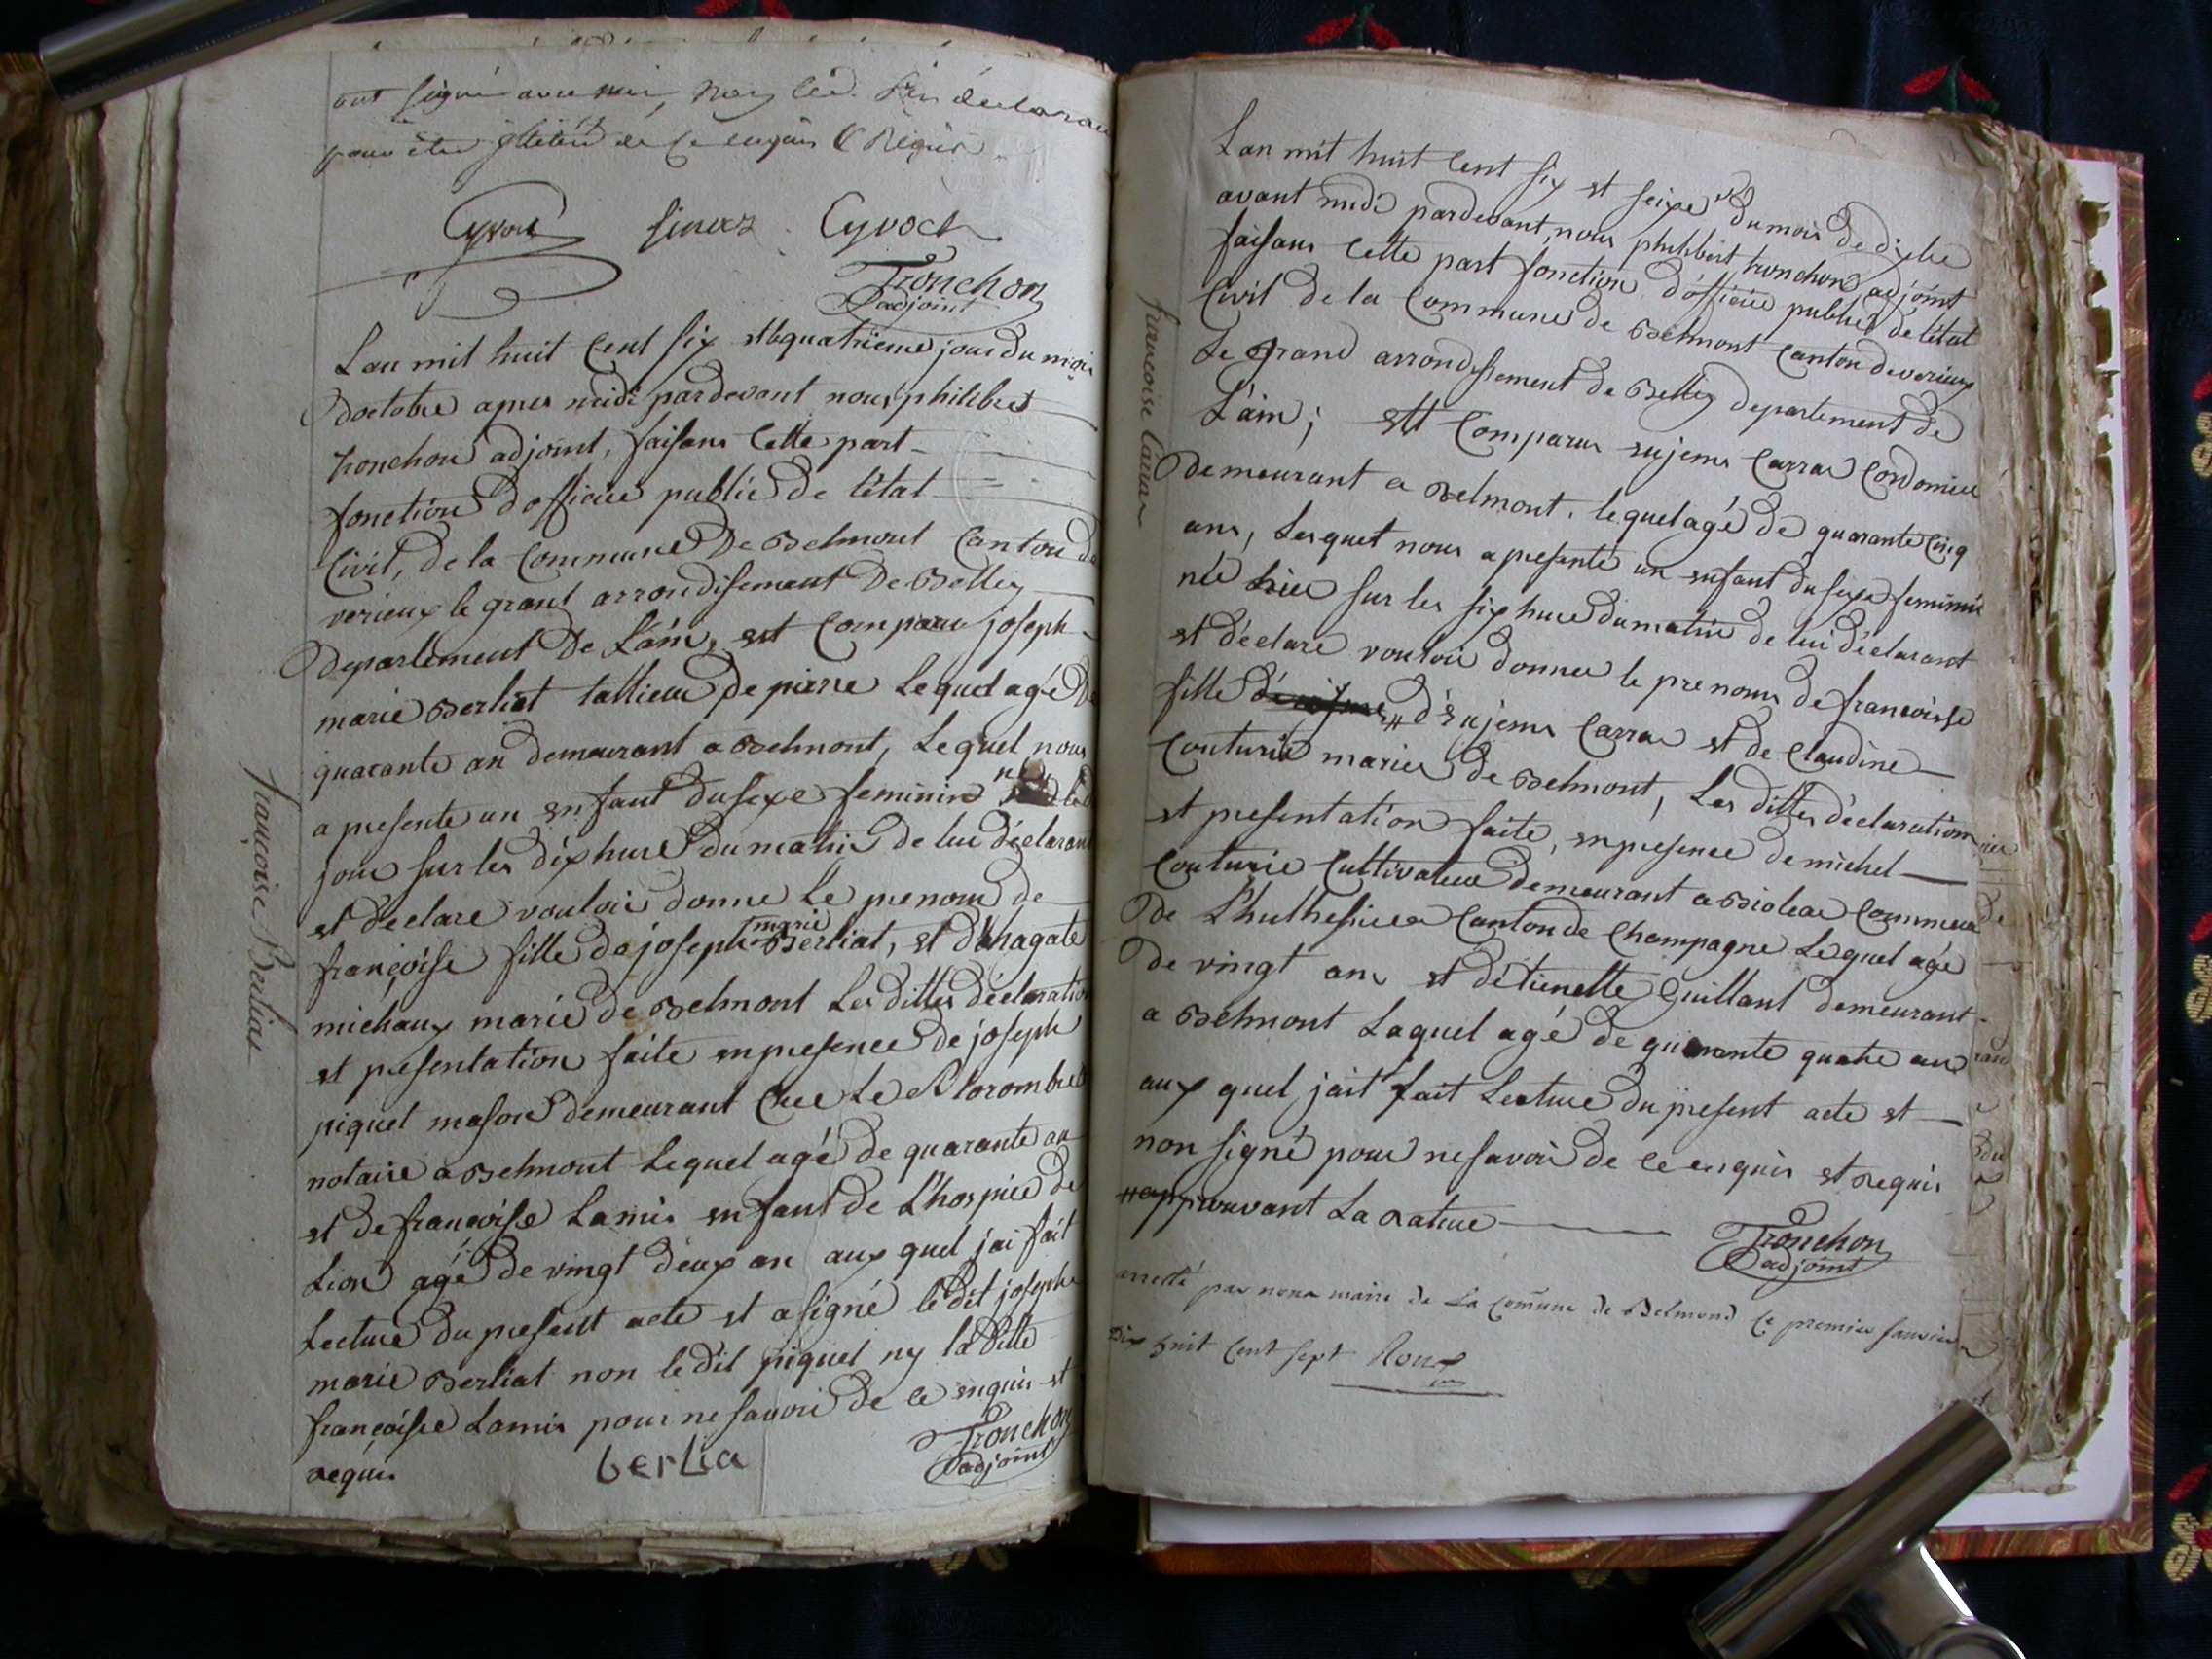 ont signé avec moi, non led. déclarant
pour être illitéré de ce enquis & Requis
Cyvoct
Cyvoct
Tronchon
adjoint
Lan mil huit Cent six et le quatrieme jour du moi
doctobre apres midi pardevant nous philibert
tronchon adjoint, faisans Cette part
fonction dofficier public de l'état
Civil, de la Commune De Belmont Canton de
verieux le grant arrondisement De Belley
Departement De L'ain, est Comparu joseph
marie Berliat tallieur de pierre Lequel agé De
quarante an demeurant a Belmont, Lequel nous
a presente un enfant du sexe feminin né led
jour sur les dix hure du matin de lui déclarant
et declare vouloir donne Le prenom de
françoise fille de joseph marie Berliat, et d'hagate
michaux marié de Belmont Les dittes déclaration
et presentation faite en presence de joseph
piquet mason demeurant Chee Le Sr Lorombet
notaire a Belmont Lequel agé de quarante an
et de françoise Lamis enfant de L'hospice de
Lion agé de vingt deux an aux quel jai fait
Lecture du present acte et a signé le dit joseph
marie Berliat non le dit piquet ny la ditte
françoise Lamis pour ne savoir de ce enquis et
requis
berlia
Tronchon
adjoint
françoise Berliat
Lan mil huit Cent six et seize du mois de dixbre
avant midi pardevant, nous philibert tronchon adjoint
faisans Cette part fonction d'officier public de l'état
Civil de la Commune de Belmont Canton de verieux
Le grand arrondissement de Belley departement de
L'ain; est Comparus eujems Carrar Cordonier
demeurant a Belmont. lequel agé de quarante Cinq
ans, Lesquel nous a presenté un enfant du sexe feminin
né hier sur les six hure du matin de lui déclarant
et déclare vouloir donner le prenoms de francoisse
fille # d'Eujems Carrar et de Claudine
Couturie maries de Belmont, Les dittes déclaration
et presentation faite, en presence de michel
Couturie Cultivateur demeurant a Bioleas Commune
de L'huthesieu Canton de Champagne Lequel agé
de vingt ans et détienette Guillant demeurant
a Belmont Laquel agé de quarante quatre an
aux quel jait fait Lecture du present acte et
non signé pour ne savoir de ce enquis et requis
# approuvant La rature
Tronchon
adjoint
arresté par nous maire de La Comune de Belmond Ce premier janvier
Dix huit Cent sept Roux
francoise Carrar